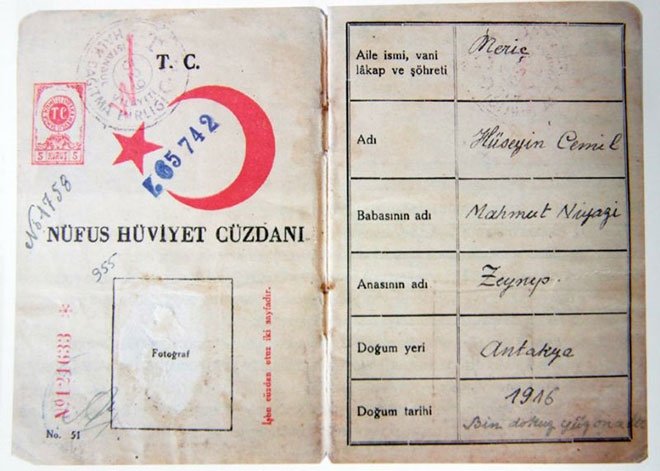 T. C.
TC
5 KURUŞ 5
465742
No 1758
NÜFUS HÜVİYET CÜZDANI
955
Fotoğraf
İşbu cüzdan otuz iki sayfadır.
No 121633 *
No. 51
Aile ismi, yani
lâkap ve şöhreti
Meriç
Adı
Hüseyin Cemil
Babasının adı
Mahmut Niyazi
Anasının adı
Zeynep
Doğum yeri
Antakya
Doğum tarihi
1916
Bin dokuz yüz on altı